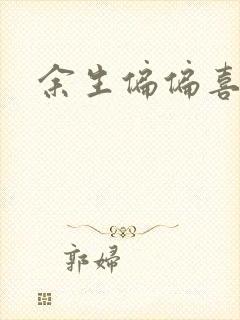 余生偏偏喜
郭婦